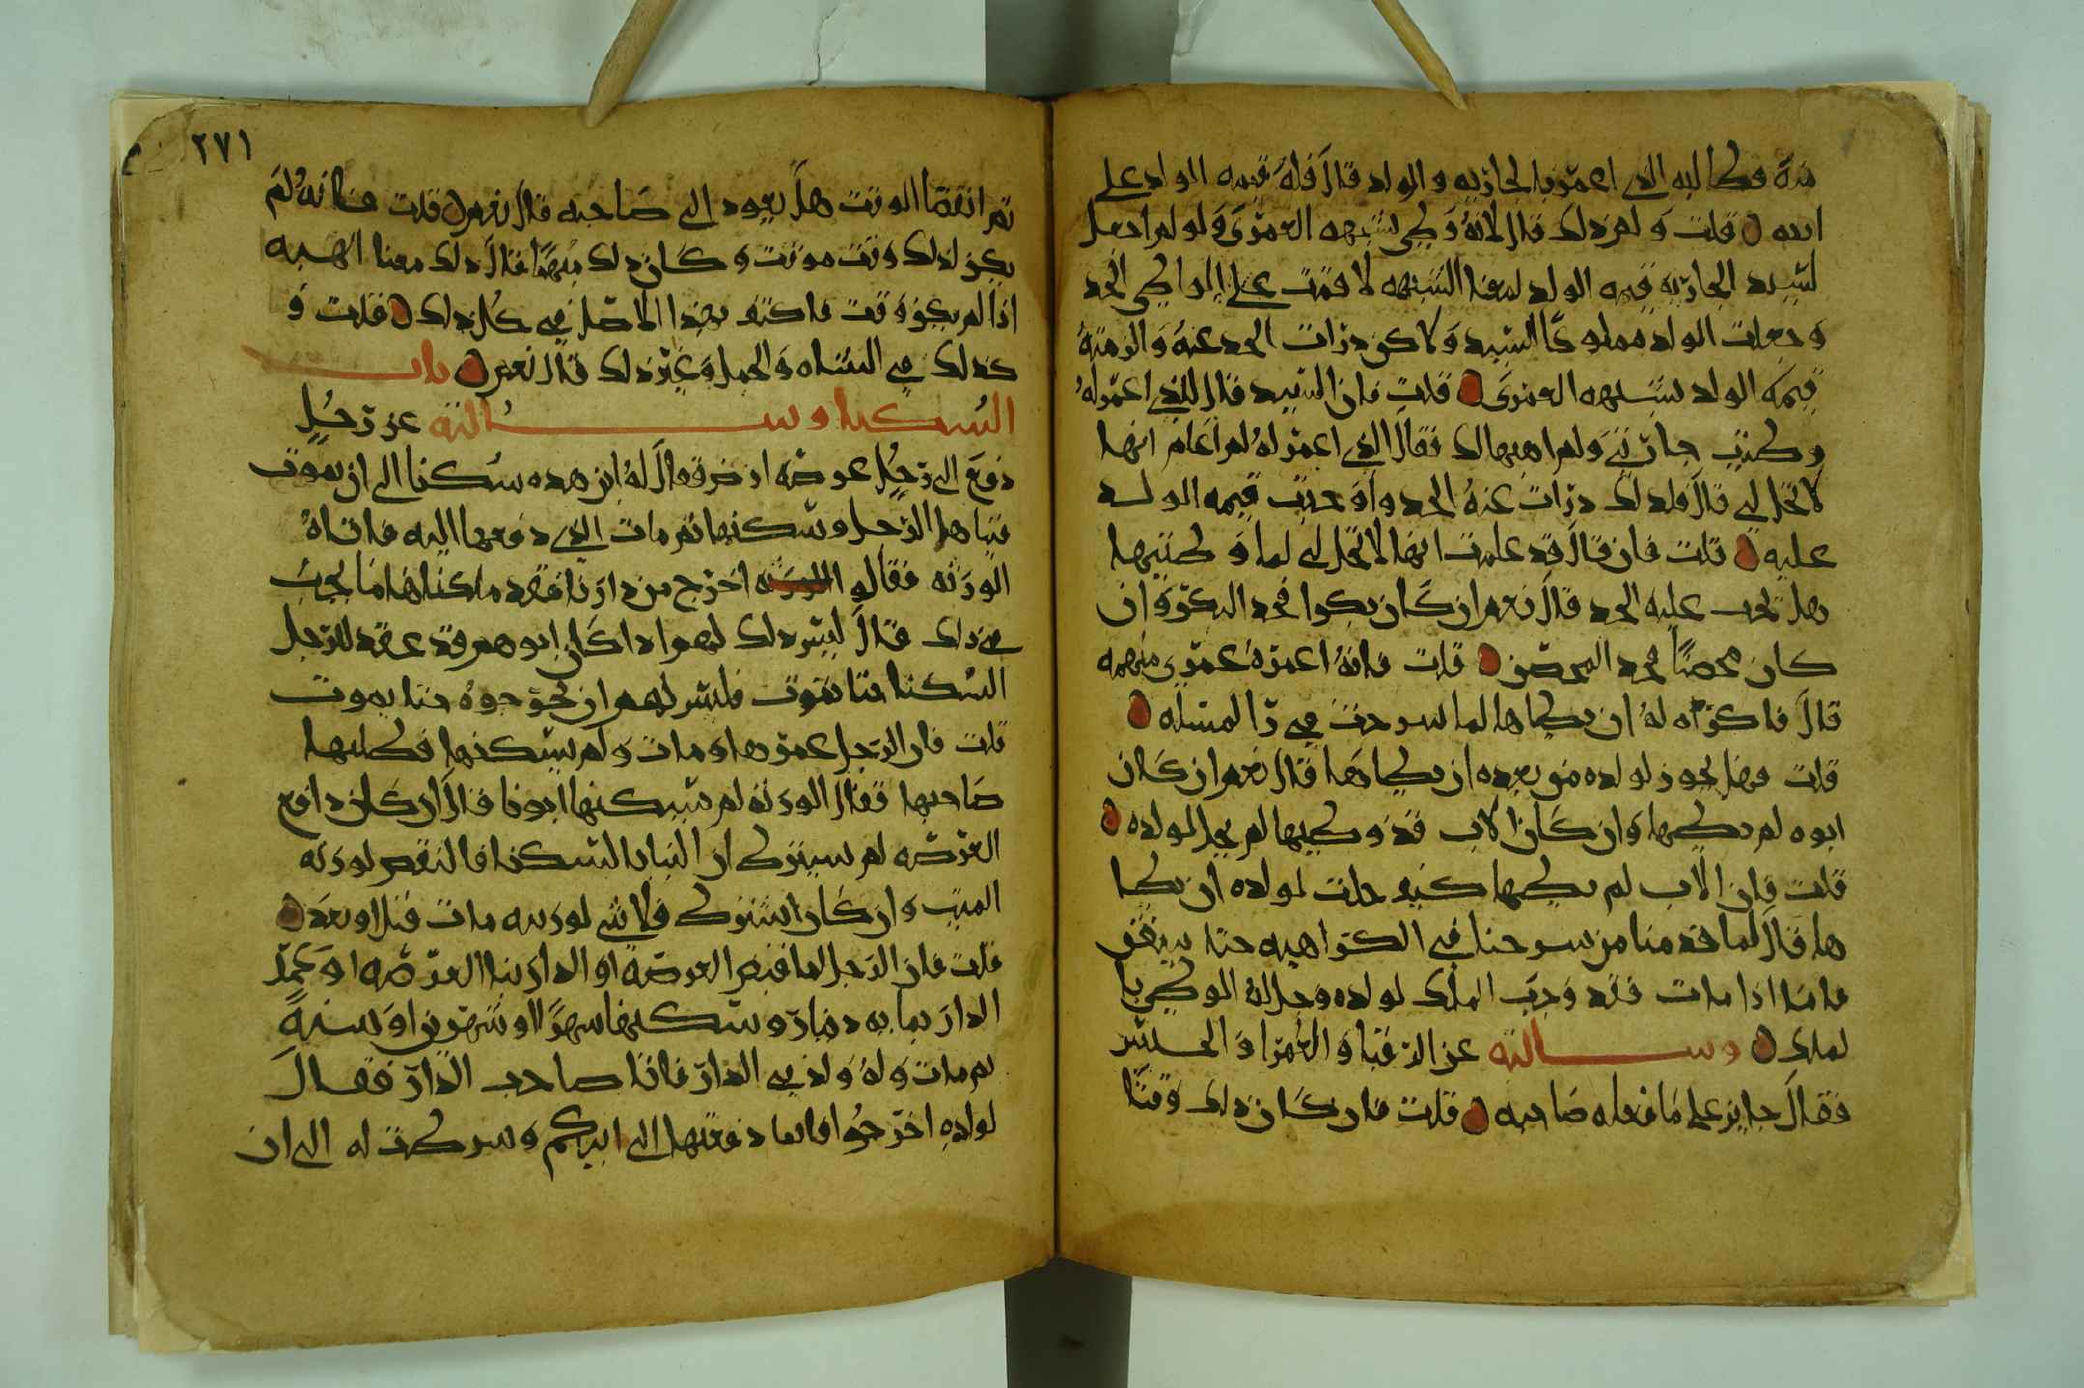 مته فطالبه الذي اعمر بالجاريه والولد قال فله قيمه الولد على
ابيه قلت ولم ذلك قال لانه وطي بشبهه العمرى ولو لم اجعل
لسيد الجاريه قيمه الولد لهذا الشبهه لاقمت على الواطي الحد
وجعلت الولد مملوكا للسيد ولاكن درات الحد عنه والزمته
قيمه الولد بشبهه العمرى قلت فان السيد قال للذي اعمر له
وطيت جاريتي ولم اهبها لك فقال الذي اعمر له لم اعلم انها
لا تحل لي قال فلذلك درات عنه الحد واوجبت قيمه الولد
عليه قلت فان قال قد علمت انها لا تحل لي لما وطيتها
هل تجب عليه الحد قال نعم ان كان بكرا فحد البكر وان
كان محصنا فحد المحصن قلت فانه اعمره عمرى مبهمه
قال فاكره له ان يطاها لما شرحت في ذا المسله
قلت فهل يجوز لولده من بعده ان يطاها قال نعم ان كان
ابوه لم يطها وان كان الاب قد وطيها لم يحل لولده
قلت فان الاب لم يطها كيف حلت لولده ان يطا
ها قال لما قدمنا من شرحنا في الكراهيه حتا
فاما اذا مات فقد وجب الملك لولده وحل له الوطي با
لملك وسالته عن الرقبا والعمرا والحبس
فقال جايز على ما فعله صاحبه قلت فان كان ذلك وقتا
٢٧١
ثم انقضا الوقت هل يعود الى صاحبه قال نعم قلت فانه لم
يكن لذلك وقت موقت وكان ذلك مبهما قال ذلك معنا الهبه
اذا لم يكن وقت فاكتف بهذا الاصل في كل ذلك قلت و
كذلك في الشاه والجمل وغير ذلك قال نعم باب
السكنا وسالته عن رجل
دفع الى رجل عرصه ارض فقال له ابن هذه سكنا الى ان يموت
فبناها الرجل وسكنها ثم مات الذي دفعها اليه فاتاه
الورثه فقالو اخرج من دارنا فقد ما يجب
في ذلك قال ليس ذلك لهم اذا كان ابوهم قد عقد للرجل
السكنا حتا يموت فليس لهم ان يخرجوه حتا يموت
قلت فان الرجل عمرها ومات ولم يسكنها فطلبها
صاحبها فقال الورثه لم يسكنها ابونا قال ان كان دافع
العرصه لم يشترط ان البنا بالسكنا فالنقص لورثه
الميت وان كان اشترط فلا شي لورثته مات قبل او بعد
قلت فان الرجل لما قبض العرصه او الدار بنا العرصه او عمر
الدار بمايه دينار وسكنها شهرا او شهرين او سنة
ثم مات وله ولد في الدار فاتا صاحب الدار فقال
لولده اخرجوا فانما دفعتها الى ابيكم وشرطت له الى ان